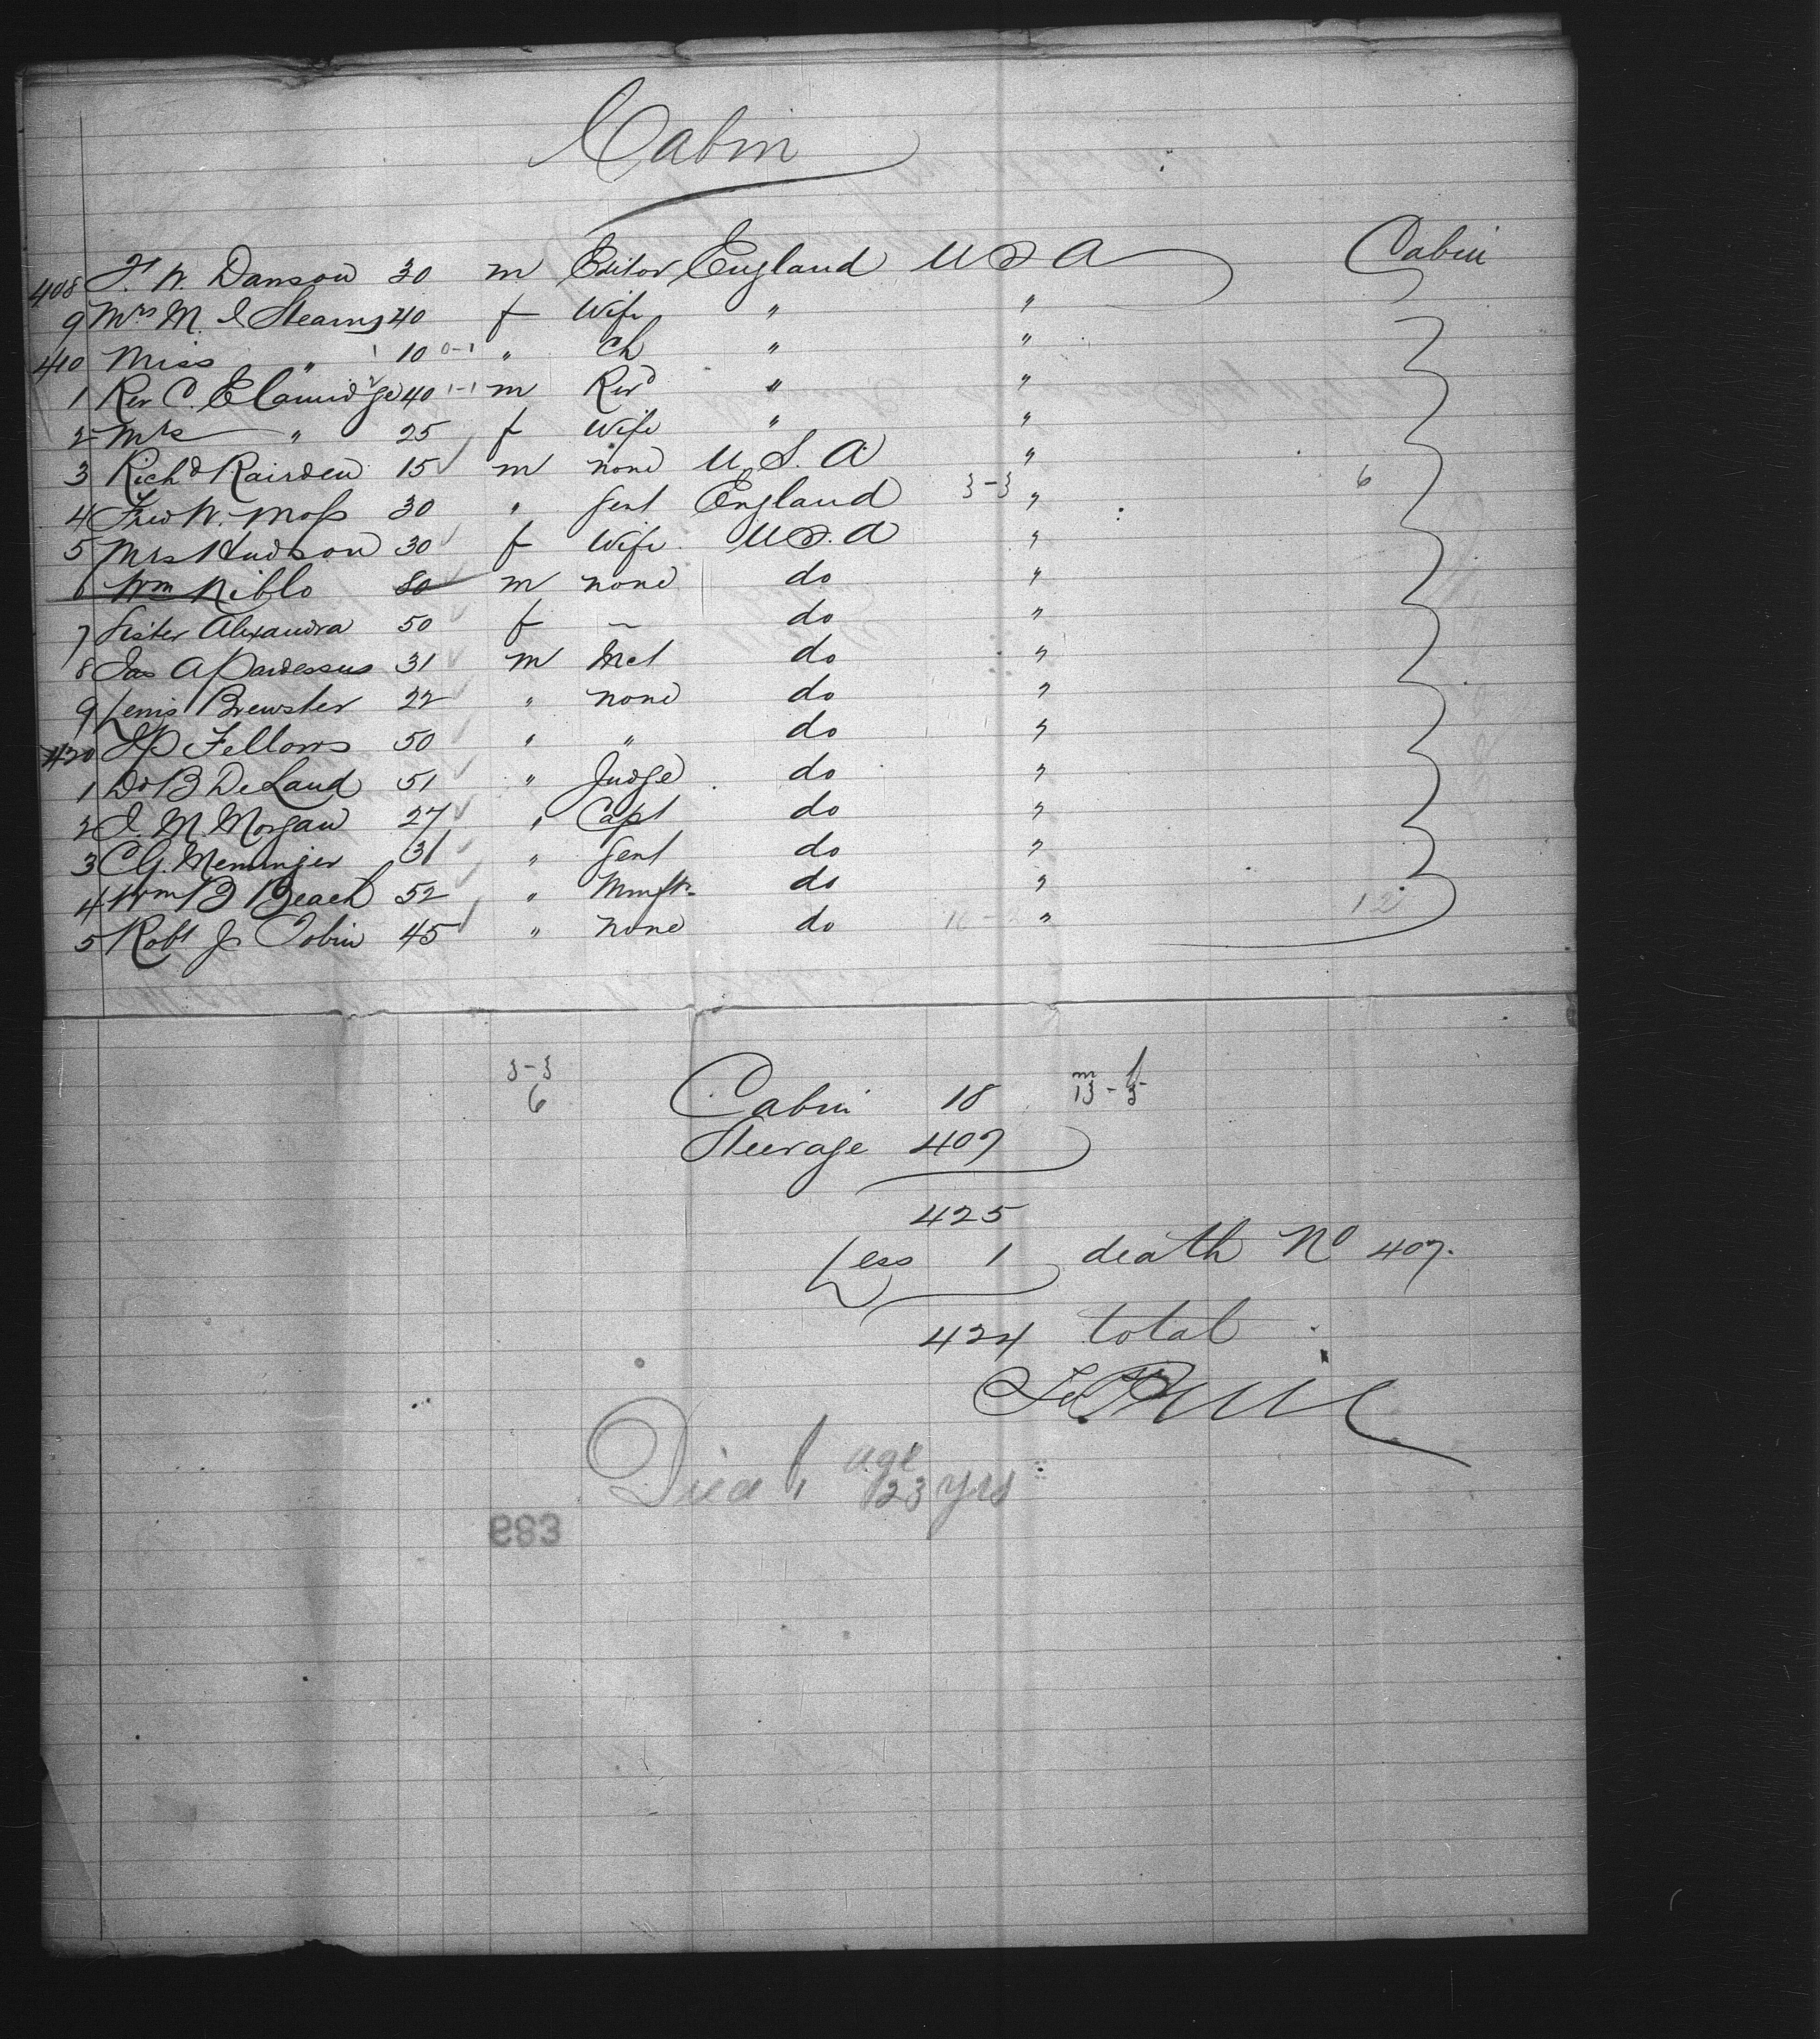 Cabin
408 F. W. Danson 30 m Editor England U S A Cabin
9 Mrs M. I Stearns 40 f Wife " "
410 Miss " 10 0-1 " Ch " "
1 Rev C. E Camidge 40 1-1 m Revd " "
2 Mrs " 25 f Wife " "
3 Richd Rairden 15 m none U. S. A "
4 Fred W. Moss 30 " Gent England 3-3 " 6
5 Mrs Hudson 30 f Wife U S. A "
6 Wm Niblo 80 m none do "
7 Sister Alexandra 50 f — do "
8 Jas A Pardessus 31 m Mct do "
9 Lewis Brewster 22 " none do "
420 J P Fellows 50 " " do "
1 D B DeLand 51 " Judge do "
2 J. M Morgan 27 " Capt do "
3 C G. Memminger 31 " Gent do "
4 Wm B Beach 52 " Mmftr do "
5 Robt J Tobin 45 " none do " 12
3-3
6
Cabin 18 m f
13-5
Steerage 407
425
Less 1 death No 407.
424 total
Died 1, age 23 yrs
683